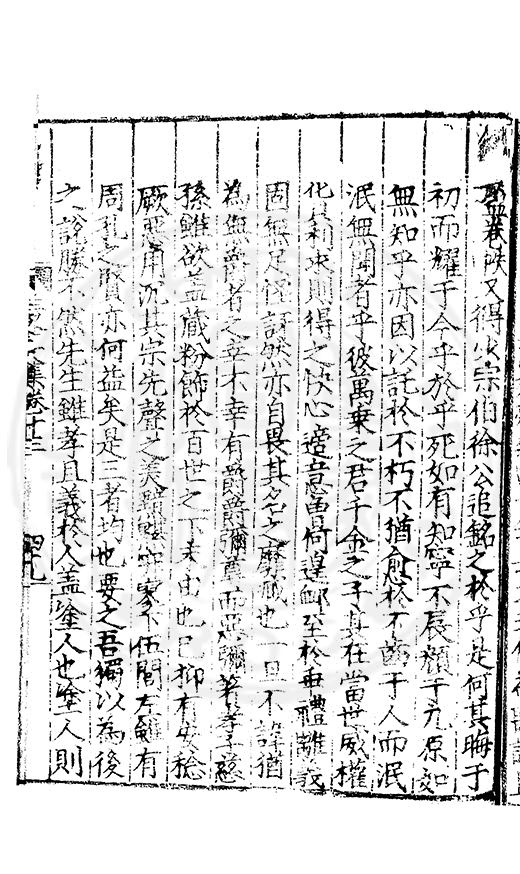 卷帙又得少宗伯徐公追銘之於乎是何其晦于
初而耀于今乎於乎死如有知寧不展顏于九原如
無知乎亦因以託於不朽不猶愈於不齒于人而泯
泯無聞者乎彼萬乘之君千金之子其在當世威權
化其利澤則得之快心適意奚侍遑卹至於毒禮離義
固無足怪訝然亦自畏其名之磨滅也一旦不諱猶
為無益者之幸不幸有爵彌尊而惡彌著孝子慈
孫雖欲蓋藏粉飾於百世之下末由也已抑有
厥惡用沉其宗先聲之美不伍閭左雖有
周孔之賢亦何益矣是三者均也要之吾獨以為後
之說勝不然先生雖孝且義於人蓋塗人也塗人則
集卷十三
四九